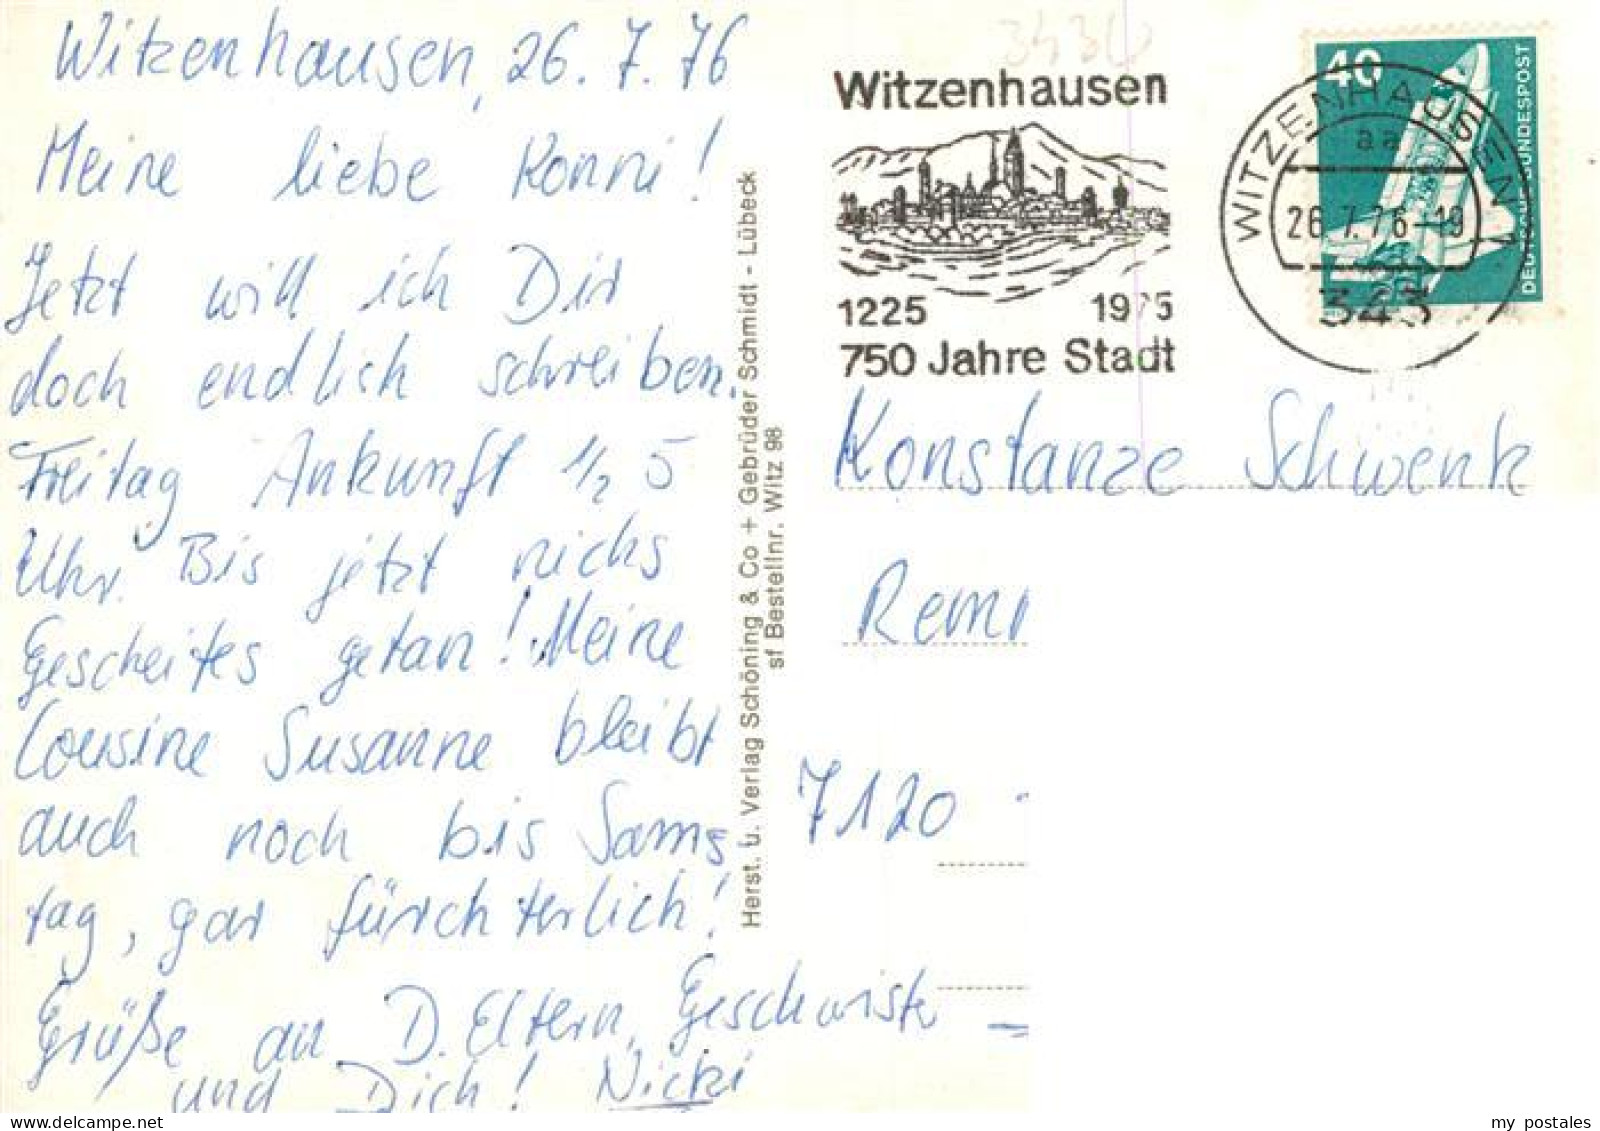 Witzenhausen, 26. 7. 76
Meine liebe Konni!
Jetzt will ich Dir
doch endlich schreiben.
Freitag Ankunft 1/2 5
Uhr. Bis jetzt nichs
Gescheites getan! Meine
Cousine Susanne bleibt
auch noch bis Sams
tag, gar fürchterlich!
Grüße an D. Eltern, Geschwister
und Dich! Nicki
Herst. u. Verlag Schöning & Co + Gebrüder Schmidt - Lübeck
sf Bestellnr. Witz 98
3430
Witzenhausen
1225 1975
750 Jahre Stadt
WITZENHAUSEN 1
aa
26.7.76-19
343
40
DEUTSCHE BUNDESPOST
Konstanze Schwenk
Remr
7120
my postales